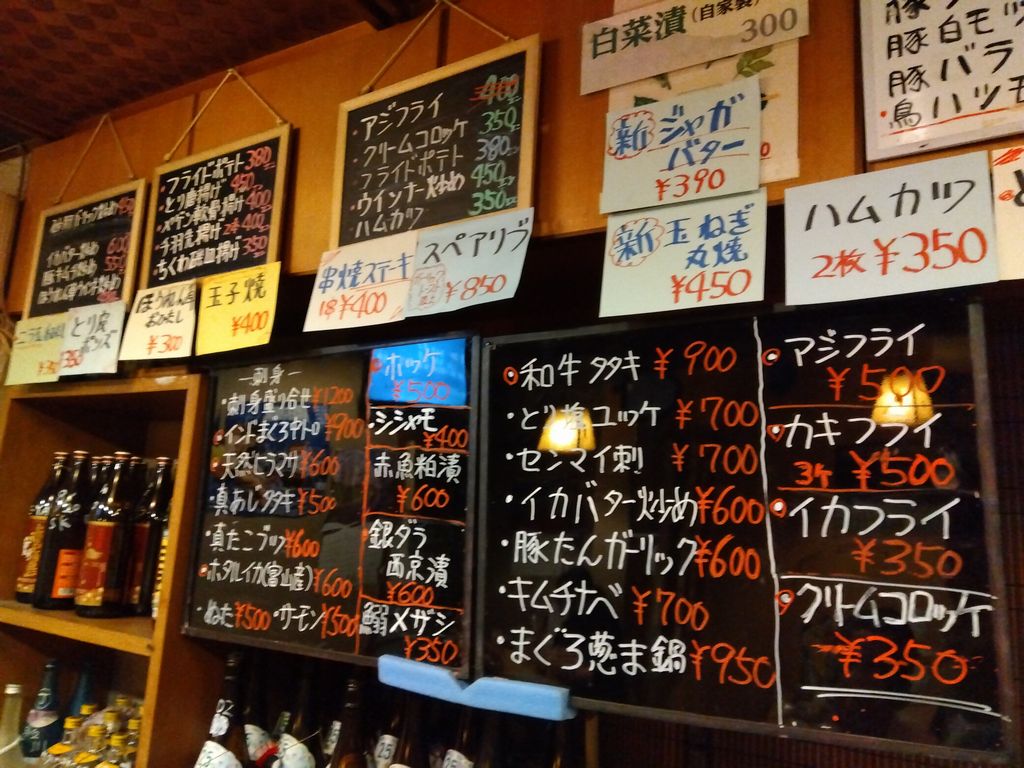 白菜漬(自家製)
300
豚
豚白モツ
豚バラ
鳥ハツモ
・アジフライ 400
・クリームコロッケ 350
・フライドポテト 380
・ウインナー炒め 450
・ハムカツ 350
・フライドポテト 380
・とり唐揚げ 450
・メヂン軟骨揚げ 400
・手羽先揚げ 2本400
・ちくわ磯辺揚げ 350
450
・イカバター炒め 600
・豚キムチ炒め 550
新ジャガ
バター
¥390
新玉ねぎ
丸焼
¥450
ハムカツ
2枚¥350
串焼ステーキ
1本¥400
スペアリブ
¥850
玉子焼
¥400
ほうれん草
おひたし
¥300
とり皮
ポンズ
350
¥350
―刺身―
・刺身盛り合せ¥1200
・インドまぐろ中トロ¥900
・天然ヒラマサ¥600
・真あじタタキ¥500
・真たこブツ¥600
・ホタルイカ(富山産)¥600
・ぬた¥500・サーモン¥500
・ホッケ
¥500
・シシャモ
¥400
赤魚粕漬
¥600
銀ダラ
西京漬
¥600
鰯メザシ
¥350
・和牛タタキ ¥900
・とり塩ユッケ ¥700
・センマイ刺 ¥700
・イカバター炒め¥600
・豚たんガーリック¥600
・キムチナベ ¥700
・まぐろ葱ま鍋¥950
アジフライ
¥500
カキフライ
3ケ ¥500
・イカフライ
¥350
クリームコロッケ
¥350